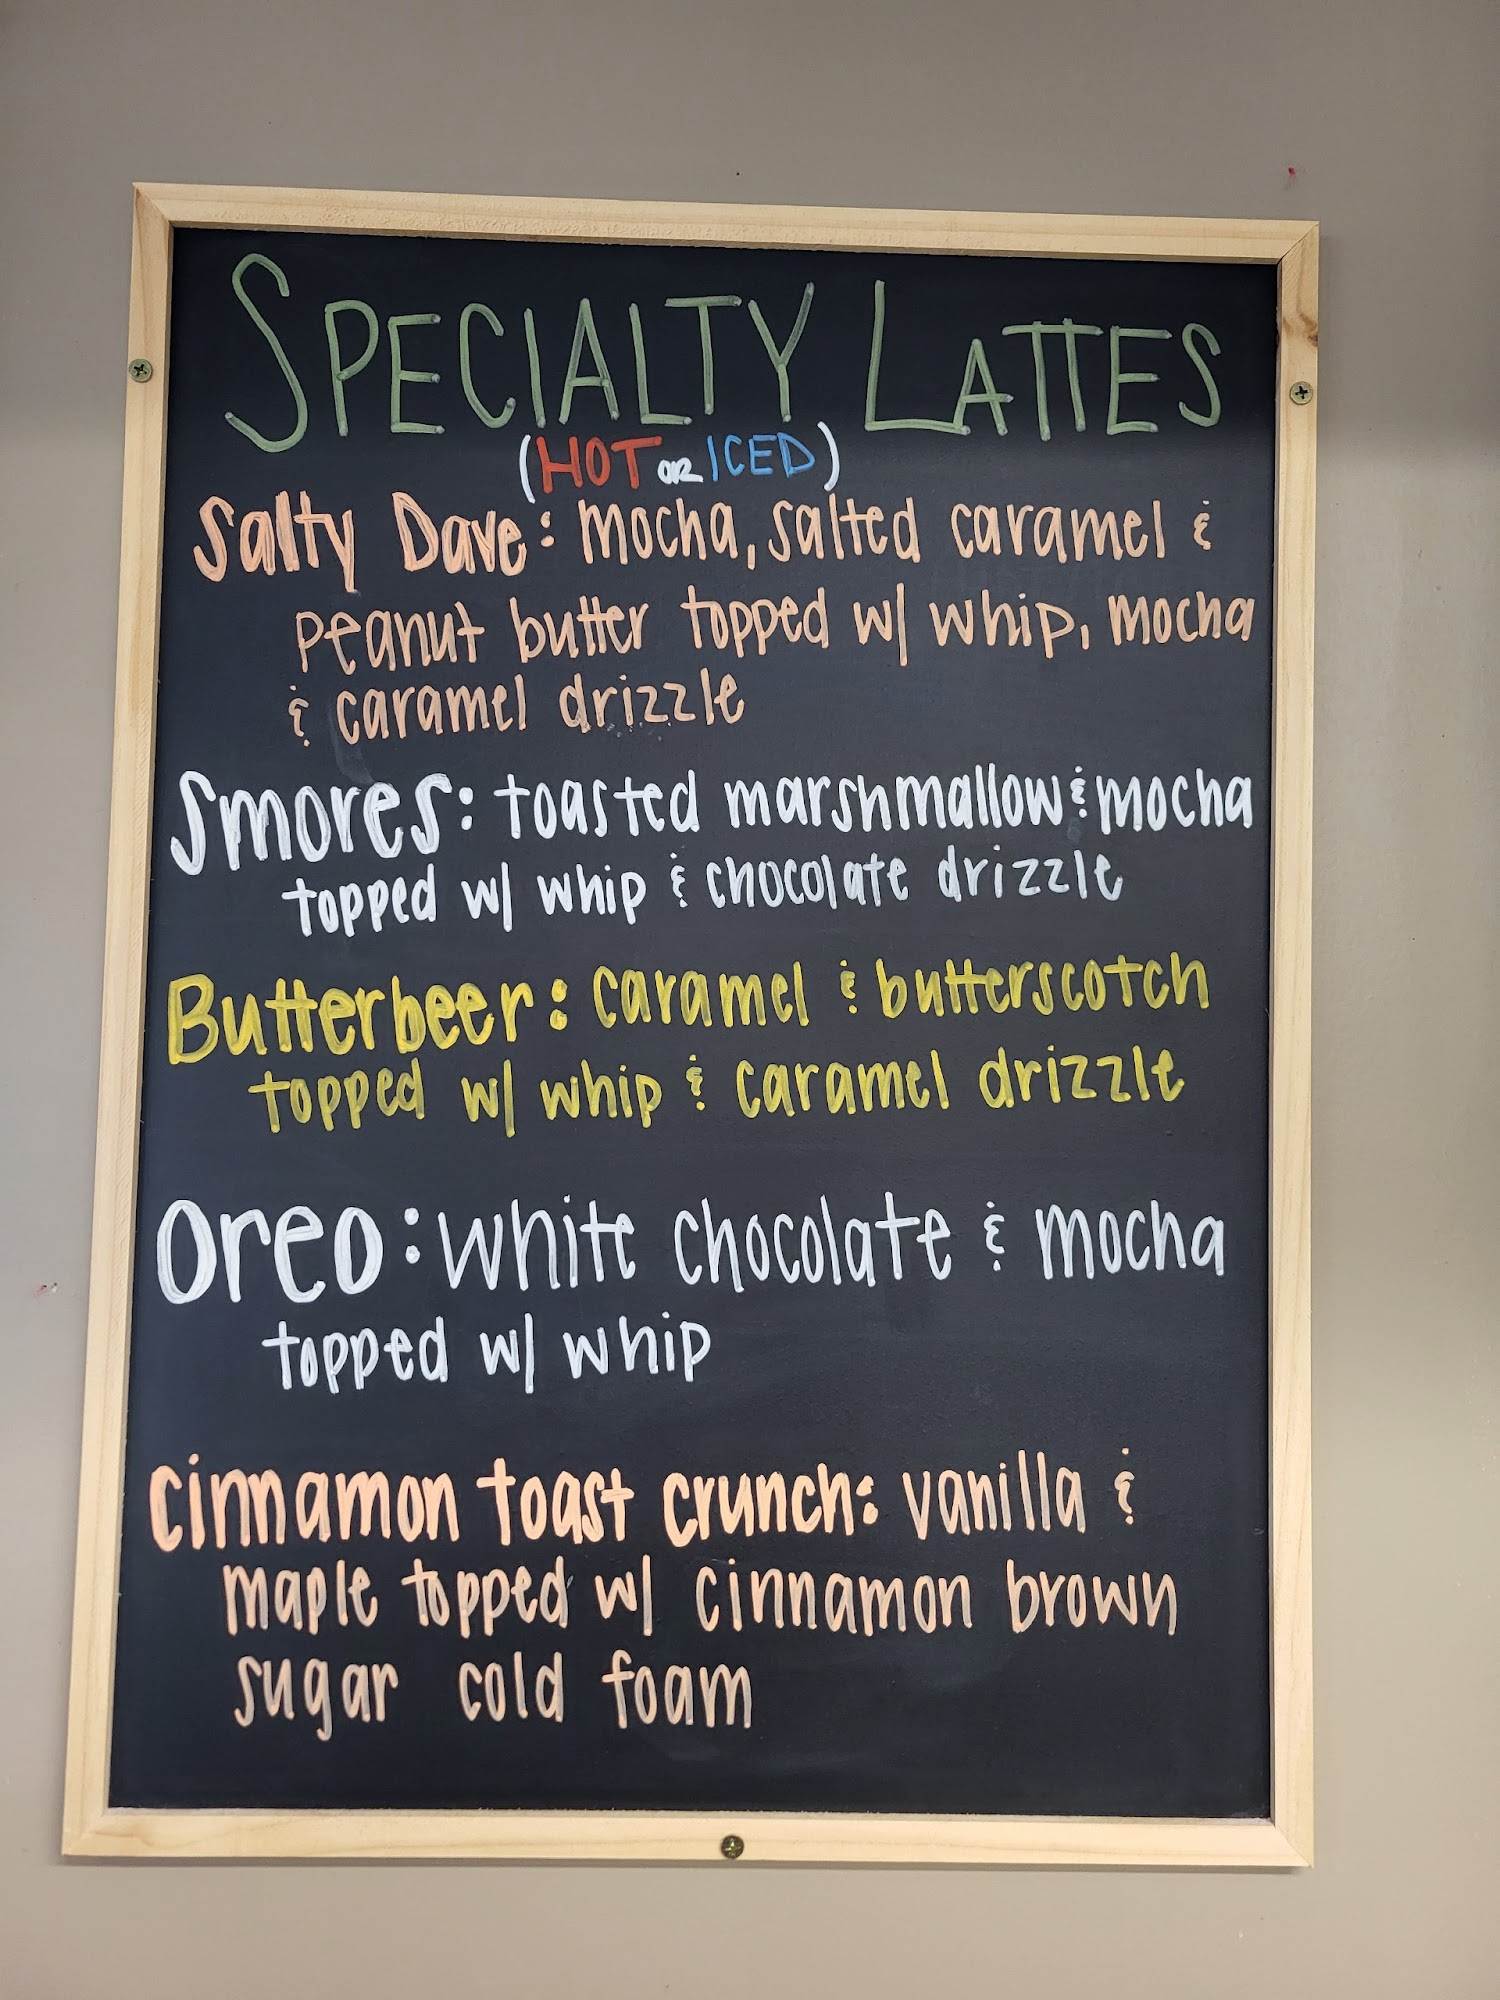 SPECIALTY LATTES
(HOT OR ICED)
Salty Dave: mocha, salted caramel &
peanut butter topped w/ whip, mocha
& caramel drizzle
Smores: toasted marshmallow & mocha
topped w/ whip & chocolate drizzle
Butterbeer: caramel & butterscotch
topped w/ whip & caramel drizzle
Oreo: white chocolate & mocha
topped w/ whip
cinnamon toast crunch: vanilla &
maple topped w/ cinnamon brown
sugar cold foam